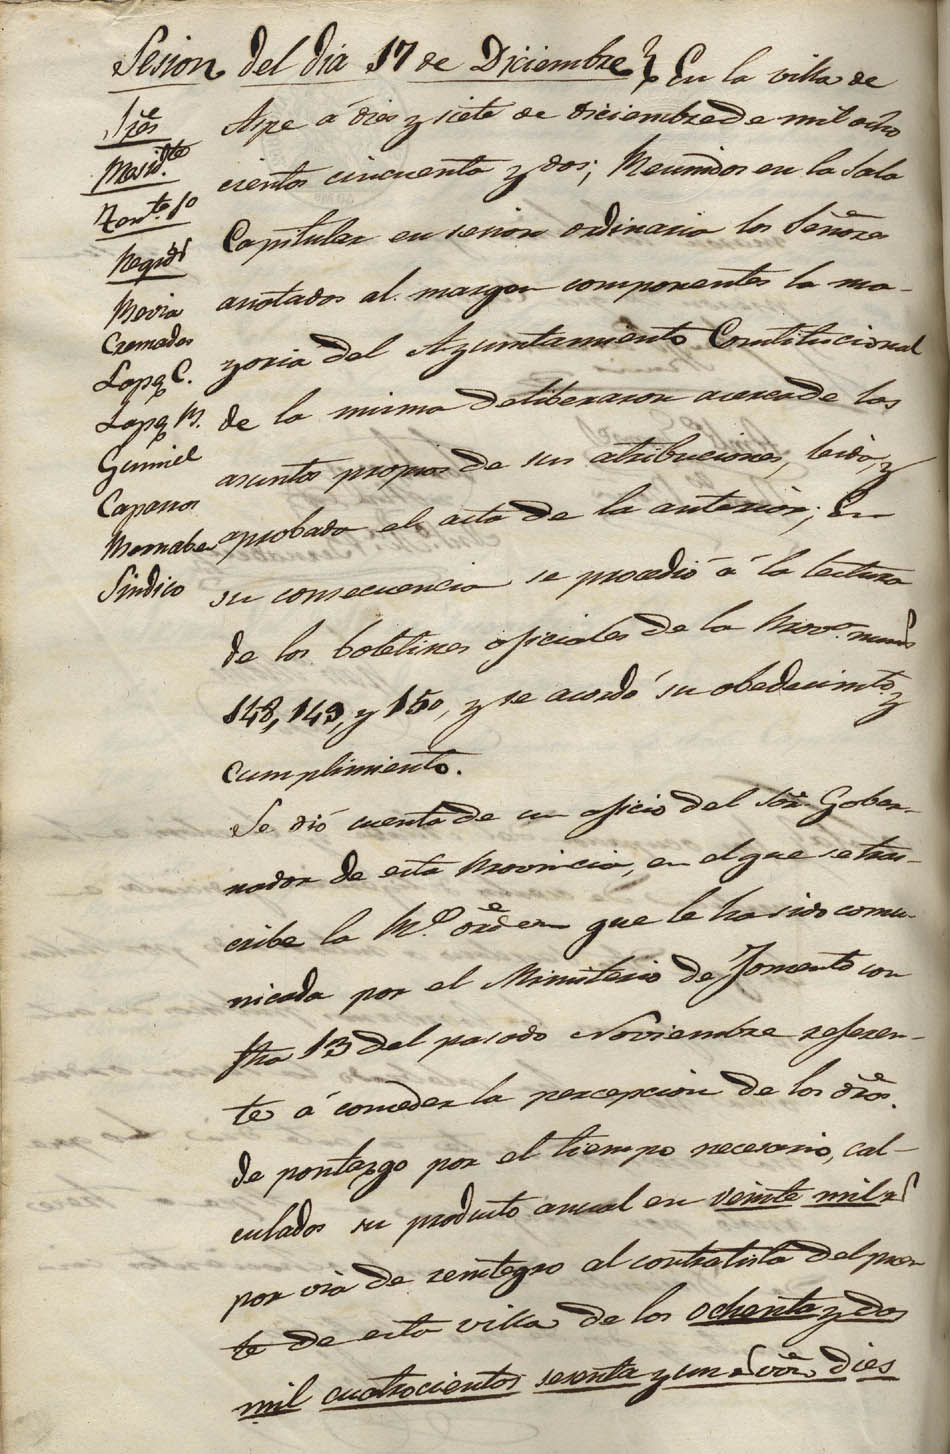 Sesion del dia 17 de Diciembre } En la villa de
Aspe á dies y siete de diciembre de mil ocho
cientos cincuenta y dos; Reunidos en la Sala
Capitular en sesion ordinaria los Señores
anotados al margen componentes la ma-
yoria del Ayuntamiento Constitucional
de la misma deliberaron acerca de los
asuntos propios de sus atribuciones, leida, y
aprobada el acta de la anterior; En
su consecuencia se procedió á la lectura
de los boletines oficiales de la Prova. nums
148, 149, y 150, y se acordó su obedecimto. y
cumplimiento.
Se dió cuenta de un oficio del Sôr. Gober-
nador de esta Provincia, en el que se tras-
cribe la Rl. orden que le ha sido comu-
nicada por el Ministerio de Fomento con
fha 13 del pasado Noviembre referen-
te á conceder la percepcion de los dros.
de pontazgo por el tiempo necesario, cal-
culados su producto anual en veinte mil rs
por via de reintegro al contratista del puen-
te de esta villa de los ochenta y dos
mil cuatrocientos sesenta y un rs von dies
Sres
Presidte.
Tente. 1o
Regids
Mevia
Cremades
Lopez C.
Lopez M.
Gumiel
Caparros
Sindico